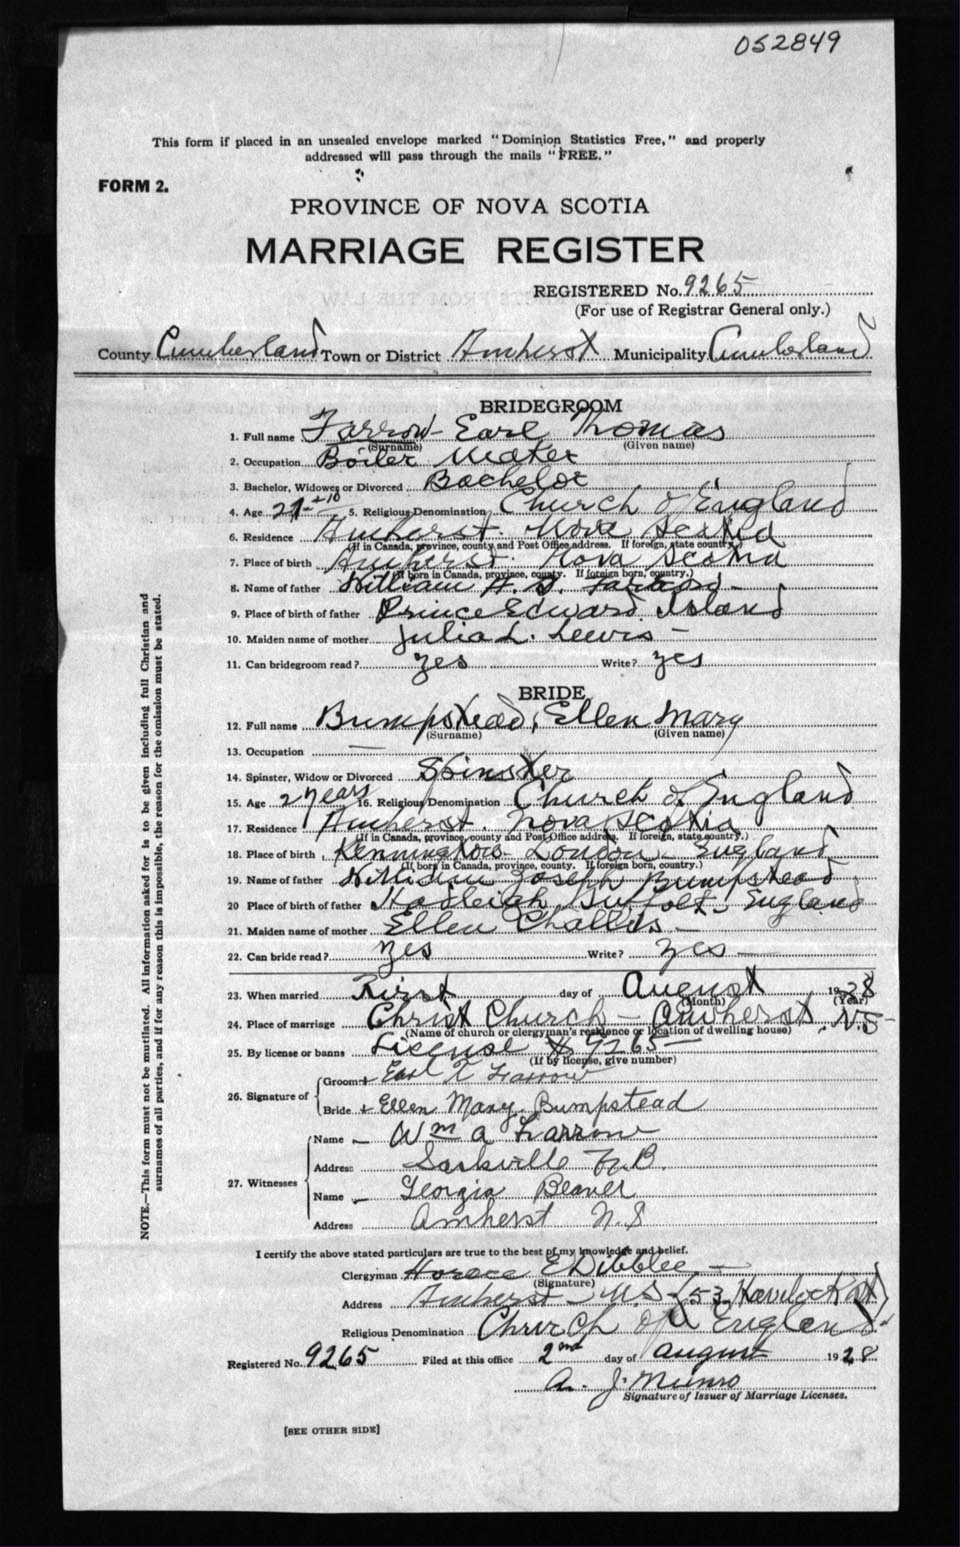 052849
This form if placed in an unsealed envelope marked "Dominion Statistics Free," and properly
addressed will pass through the mails "FREE."
FORM 2.
PROVINCE OF NOVA SCOTIA
MARRIAGE REGISTER
REGISTERED No. 9265
(For use of Registrar General only.)
County Cumberland Town or District Amherst Municipality Cumberland
BRIDEGROOM
1. Full name Farrow Earl Thomas
(Surname) (Given name)
2. Occupation Boiler Maker
3. Bachelor, Widower or Divorced Bachelor
4. Age 5. Religious Denomination Church of England
6. Residence Amherst Nova Scotia
(If in Canada, province, county and Post Office address. If foreign, state country.)
7. Place of birth Amherst Nova Scotia
(If born in Canada, province, county. If foreign born, country.)
8. Name of father William A. Farrow
9. Place of birth of father Prince Edward Island
10. Maiden name of mother Julia L. Lewis
11. Can bridegroom read? yes Write? yes
BRIDE
12. Full name Bumpstead, Ellen Mary
(Surname) (Given name)
13. Occupation —
14. Spinster, Widow or Divorced Spinster
15. Age years 16. Religious Denomination Church of England
17. Residence Amherst. Nova Scotia
(If in Canada, province, county and Post Office address. If foreign, state country.)
18. Place of birth Kennington London England
(If born in Canada, province, county. If foreign born, country.)
19. Name of father William Joseph Bumpstead
20 Place of birth of father Hadleigh Suffolk, England
21. Maiden name of mother Ellen Challis
22. Can bride read? yes Write? yes
23. When married First day of August 1928
(Month) (Year)
24. Place of marriage Christ Church - Amherst. N.S
(Name of church or clergyman's residence or location of dwelling house)
25. By license or banns License # 9265
(If by license, give number)
26. Signature of
Groom + Earl T Farrow
Bride + Ellen Mary Bumpstead
27. Witnesses
Name - Wm A Farrow
Address Sackville N.B.
Name - Georgia Beaver
Address Amherst N.S
I certify the above stated particulars are true to the best of my knowledge and belief.
Clergyman Horace E Dibblee
(Signature)
Address Amherst N.S (53 Havelock St)
Religious Denomination Church of England
Registered No. 9265 Filed at this office 2nd day of August 1928
A. J. Munro
Signature of Issuer of Marriage Licenses.
[SEE OTHER SIDE]
NOTE.—This form must not be mutilated. All information asked for is to be given including full Christian and
surnames of all parties, and if for any reason this is impossible, the reason for the omission must be stated.